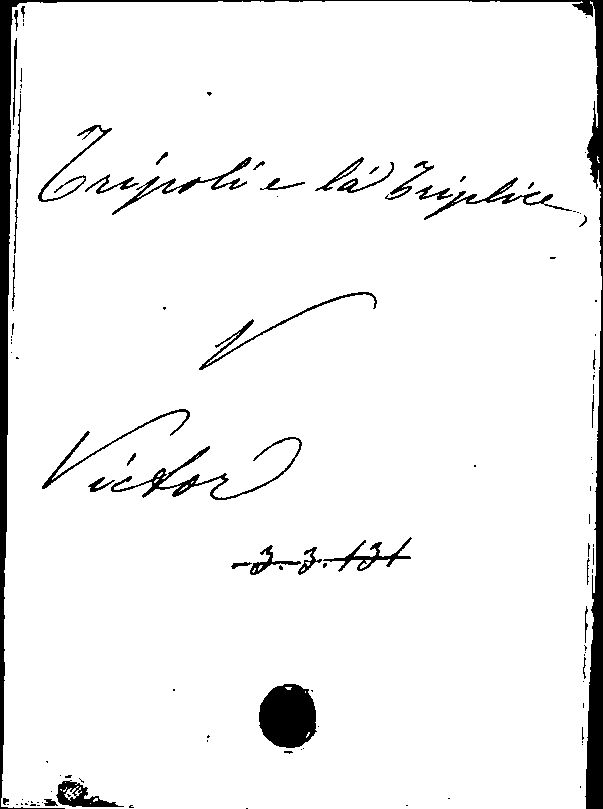 Tripoli e la Triplice
V
Victor
3. 3. 131